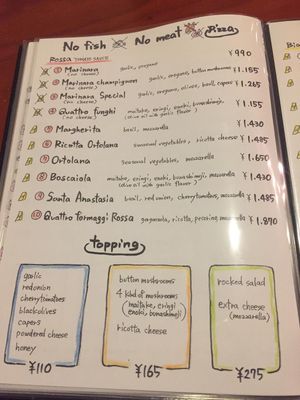 No fish No meat Pizza
Rossa TOMATO SAUCE
① Marinara garlic, oregano ¥990
(no cheese)
② Marinara champignon garlic, oregano, button mushrooms ¥1.155
(no cheese)
③ Marinara Special garlic, oregano, olives, basil, capers ¥1.265
(no cheese)
④ Quattro funghi maitake, eringi, enoki, bunashimeji ¥1.155
(no cheese) (olive oil with garlic flavor)
⑤ Margherita basil, mozzarella ¥1.430
⑥ Ricotta Ortolana seasonal vegetables, ricotta cheese ¥1.485
⑦ Ortolana seasonal vegetables, mozzarella ¥1.650
⑧ Boscaiola maitake, eringi, enoki, bunashimeji, mozzarella ¥1.430
(olive oil with garlic flavor)
⑨ Santa Anastasia basil, red onion, cherrytomatoes, mozzarella ¥1.485
⑩ Quattro formaggi Rossa gorgonzola, ricotta, pecorino, mozzarella ¥1.870
topping
garlic
redonion
cherrytomatoes
blackolives
capers
powdered cheese
honey
¥110
button mushrooms
4 kind of mushrooms
(maitake, eringi
enoki, bunashimeji)
ricotta cheese
¥165
rocked salad
extra cheese
(mozzarella)
¥275